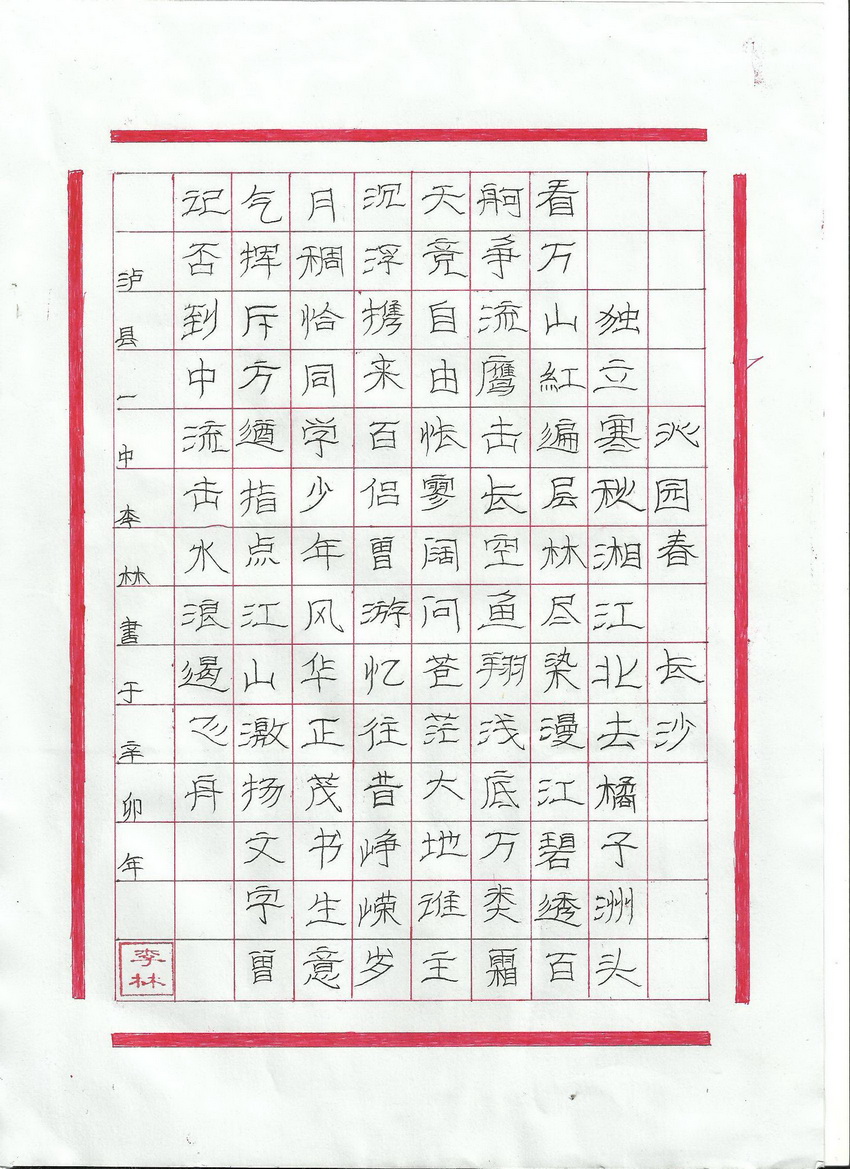 沁园春 长沙
独立寒秋湘江北去橘子洲头
看万山紅遍层林尽染漫江碧透百
舸争流鹰击长空鱼翔浅底万类霜
天竞自由怅寥阔问苍茫大地谁主
沉浮携来百侣曾游忆往昔峥嵘岁
月稠恰同学少年风华正茂书生意
气挥斥方遒指点江山激扬文字曾
记否到中流击水浪遏飞舟
泸县一中李林書于辛卯年
李林